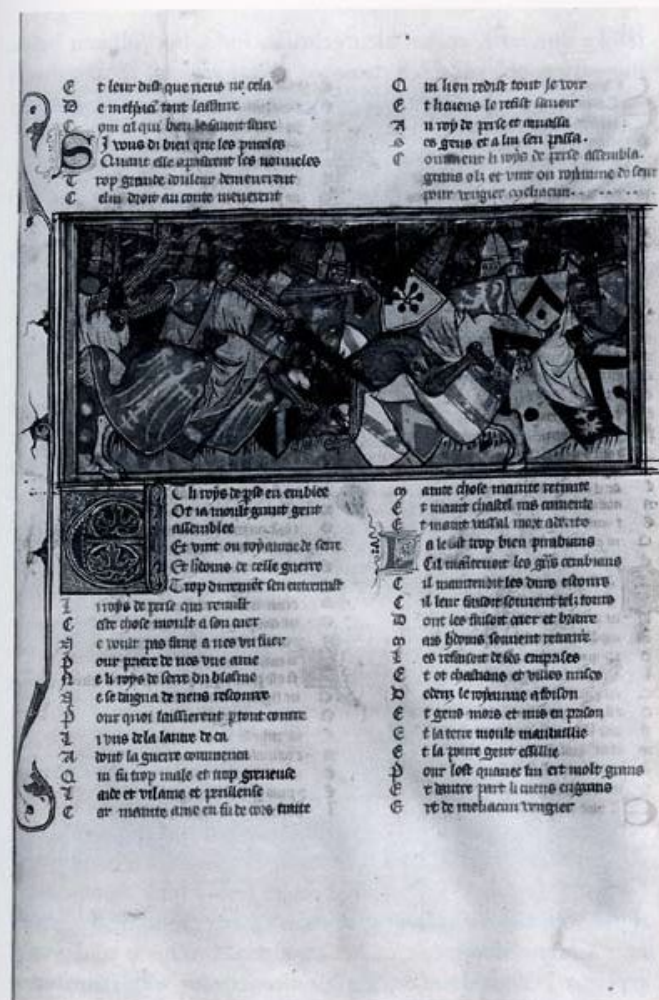 E t leur dist que riens ne cela
D e meschief tout lassure
C om cil qui bien le savoit faire
S i vous di bien que les puceles
Quant elle apristrent les nouueles
T rop grande douleur demenerent
C elui droit au conte menerent
Q ui bien redist tout le voir
E t li cuens le refist sauoir
A u roy de perse et
s es gens et a lui sen passa.
C omment li roys de perse assembla.
grans ost et vint ou royaume de serre
pour vengier mehacun
E li roys de pse en emblee
Ot ia moult grant gent
assemblee
Et vint ou royaume de serre
St hoirs de celle guerre
Trop durement sen
L i roys de perse qui
C este chose moult a son cuer
N e voult pas faire a nes vn fuer
P our priere de nes vne ame
N e li roys de serre du blasme
N e se daigna de riens rescourre
P our quoi laissierent ptout courre
L i vns de la lautre de ca
A dont la guerre commenca
Q ui fu trop male et trop greueuse
L aide et vilaine et perilleuse
C ar mainte ame en fu de cors traite
m ainte chose mainte retraite
E t maint chastel mis
E t maint vassal mort
L a le fist trop bien
Cil maintenoit les
C il maintenoit les durs estours
C il leur faisoit souuent telz tours
D ont les faisoit crier et braire
m ais souuent retraire
L es refaisoit de ses emprises
E t ot chastiaus et villes mises
D edenz le royaume a foison
E t gens mors et mis en prison
E t la terre moult
E t la poure gent essillie
P our lost qui ert molt grans
E t dautre part li cuens engrans
E rt de mehacun vengier